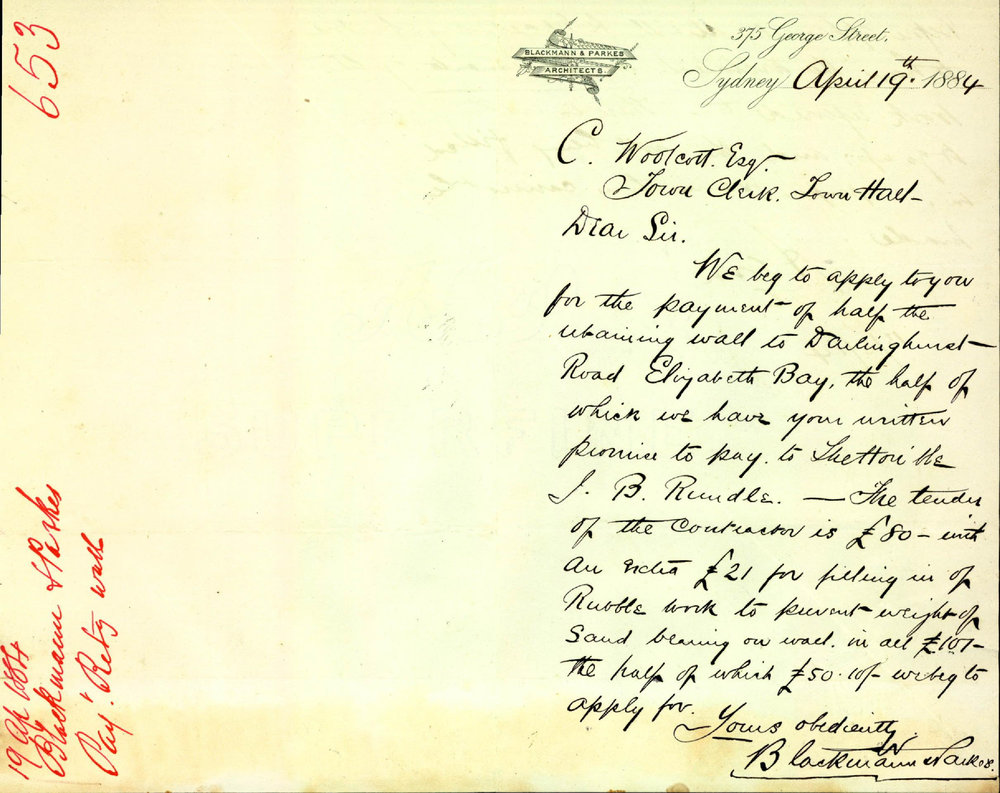 653
19 Ap 1884
Blackmann & Parkes
Pay.t Retg wall
BLACKMANN & PARKES
ARCHITECTS
375 George Street,
Sydney April 19th 1884
C. Woolcott Esq
Town Clerk. Town Hall
Dear Sir.
We beg to apply to you
for the payment of half the
retaining wall to Darlinghurst
Road Elizabeth Bay, the half of
which we have your written
promise to pay. to The Hon'ble
J. B. Rundle. — The tender
of the Contractor is £80 – with
an extra £21 for filling in of
Rubble work to prevent weight of
Sand bearing on wall. in all £101–
the half of which £50.10/- we beg to
apply for.
Yours obediently
Blackmann & Parkes.